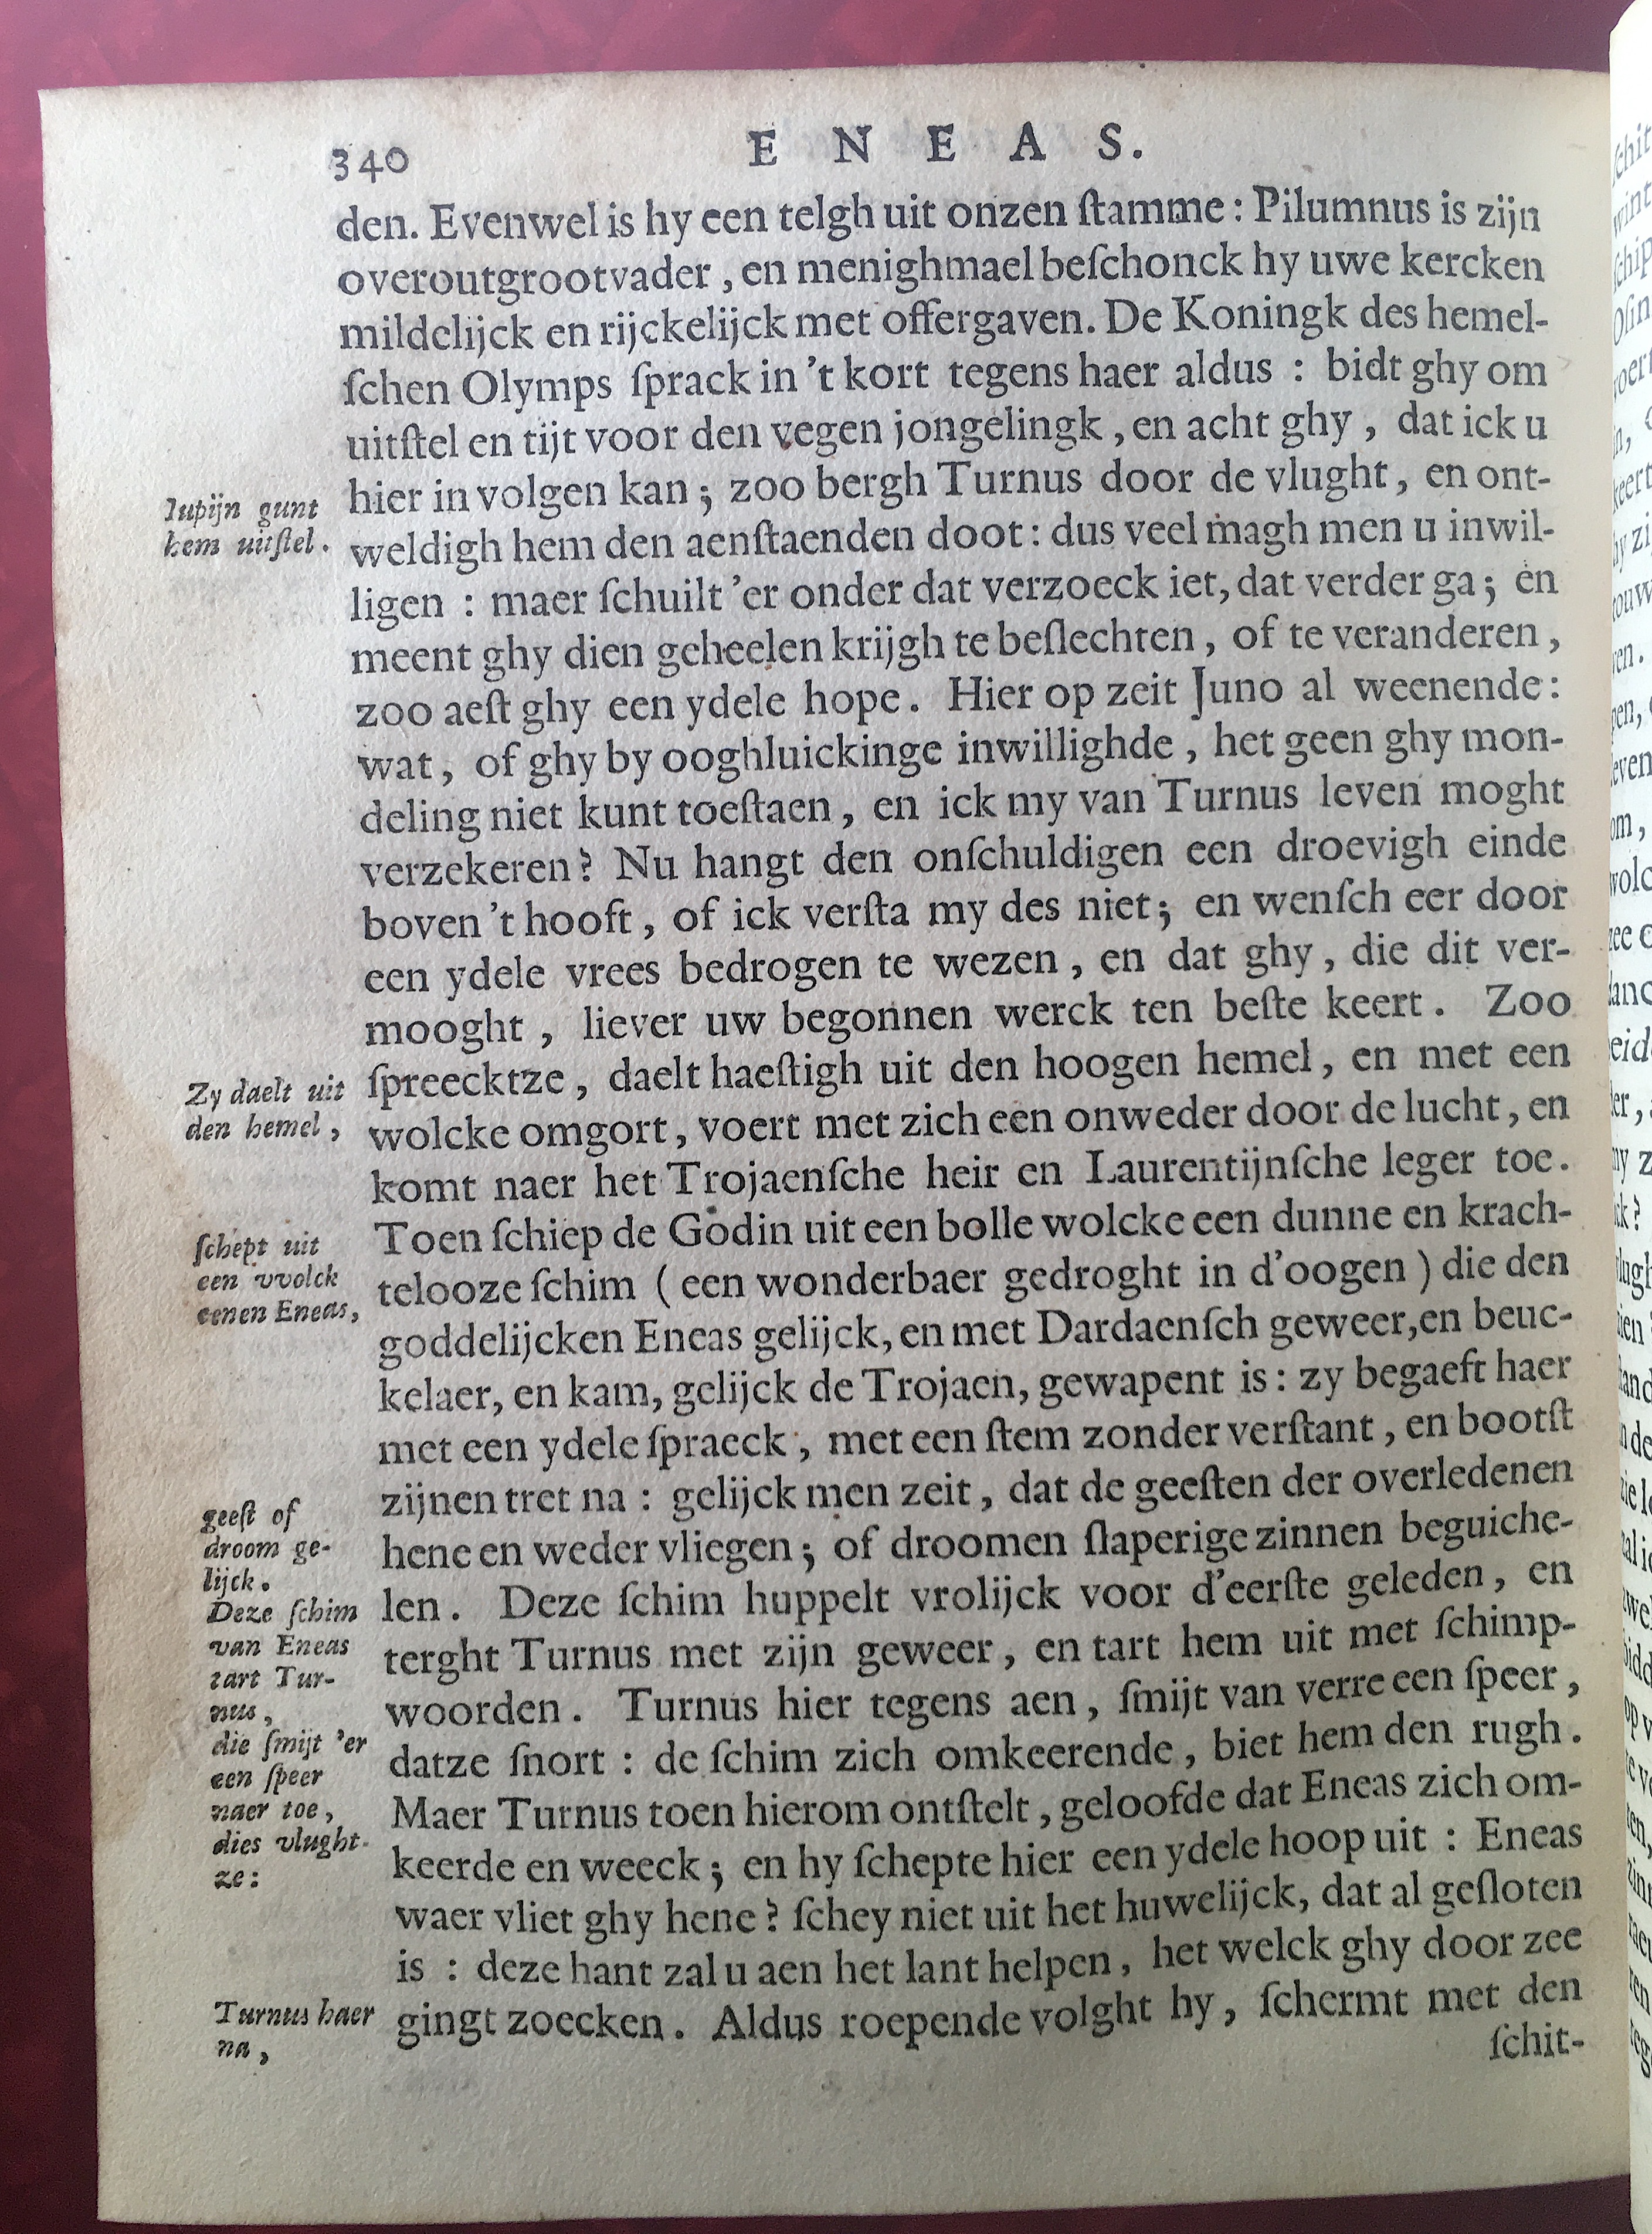 340
E N E A S.
den. Evenwel is hy een telgh uit onzen ſtamme : Pilumnus is zijn
overoutgrootvader , en menighmael beſchonck hy uwe kercken
mildelijck en rijckelijck met offergaven. De Koningk des hemel-
ſchen Olymps ſprack in 't kort tegens haer aldus : bidt ghy om
uitſtel en tijt voor den vegen jongelingk , en acht ghy , dat ick u
hier in volgen kan ; zoo bergh Turnus door de vlught , en ont-
weldigh hem den aenſtaenden doot : dus veel magh men u inwil-
ligen : maer ſchuilt 'er onder dat verzoeck iet, dat verder ga ; en
meent ghy dien geheelen krijgh te beſlechten , of te veranderen ,
zoo aeſt ghy een ydele hope . Hier op zeit Juno al weenende :
wat , of ghy by ooghluickinge inwillighde , het geen ghy mon-
deling niet kunt toeſtaen , en ick my van Turnus leven moght
verzekeren ? Nu hangt den onſchuldigen een droevigh einde
boven 't hooft , of ick verſta my des niet ; en wenſch eer door
een ydele vrees bedrogen te wezen , en dat ghy , die dit ver-
mooght , liever uw begonnen werck ten beſte keert . Zoo
ſpreecktze , daelt haeſtigh uit den hoogen hemel , en met een
wolcke omgort , voert met zich een onweder door de lucht , en
komt naer het Trojaenſche heir en Laurentijnſche leger toe .
Toen ſchiep de Godin uit een bolle wolcke een dunne en krach-
telooze ſchim ( een wonderbaer gedroght in d'oogen ) die den
goddelijcken Eneas gelijck, en met Dardaenſch geweer,en beuc-
kelaer, en kam, gelijck de Trojaen, gewapent is : zy begaeft haer
met een ydele ſpraeck , met een ſtem zonder verſtant , en bootſt
zijnen tret na : gelijck men zeit , dat de geeſten der overledenen
hene en weder vliegen ; of droomen ſlaperige zinnen beguiche-
len . Deze ſchim huppelt vrolijck voor d'eerſte geleden , en
terght Turnus met zijn geweer , en tart hem uit met ſchimp-
woorden . Turnus hier tegens aen , ſmijt van verre een ſpeer ,
datze ſnort : de ſchim zich omkeerende , biet hem den rugh .
Maer Turnus toen hierom ontſtelt , geloofde dat Eneas zich om-
keerde en weeck ; en hy ſchepte hier een ydele hoop uit : Eneas
waer vliet ghy hene ? ſchey niet uit het huwelijck, dat al geſloten
is : deze hant zal u aen het lant helpen , het welck ghy door zee
gingt zoecken . Aldus roepende volght hy , ſchermt met den
ſchit-
Iupijn gunt
hem uitſtel .
Zy daelt uit
den hemel ,
ſchept uit
een vvolck
eenen Eneas,
geeſt of
droom ge-
lijck.
Deze ſchim
van Eneas
tart Tur-
nus ,
die ſmijt 'er
een ſpeer
naer toe ,
dies vlught-
ze :
Turnus haer
na ,